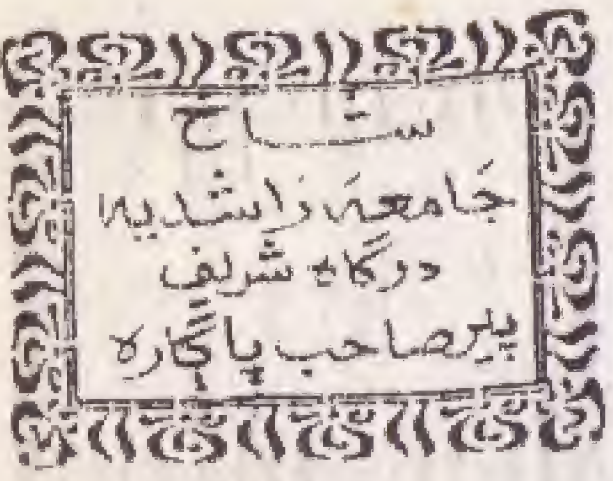 شاخ
جَامعہَ رَاشدیہ
درگاہ شریف
پیرصاحب پاڳارہ